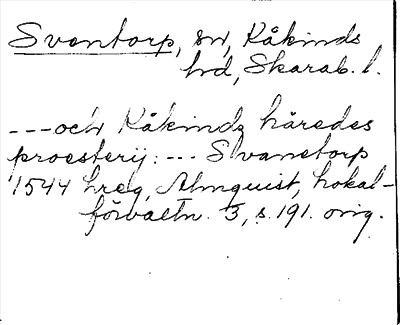 Sventorp, sn, Kåkinds
hd, Skarab. l.
---och Kåkindz häredes
proesterij: --- Svanetorp
1544 hreg, Almquist, Lokal-
förvaltn. 3, s. 191. orig.